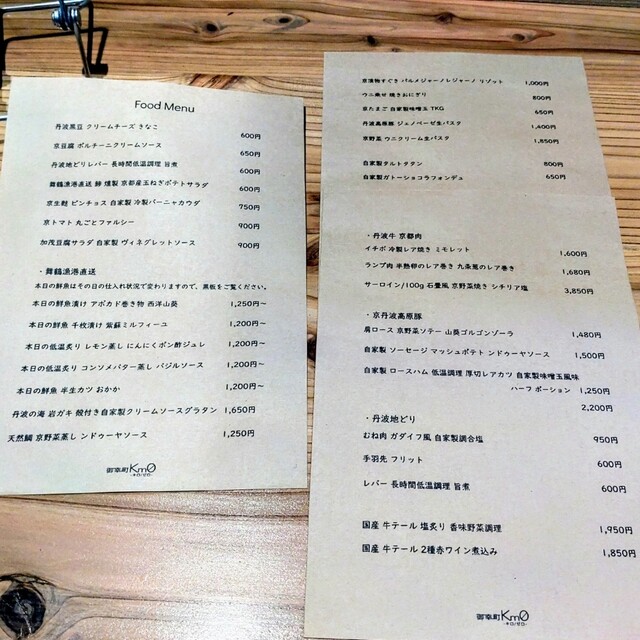 Food Menu
丹波黒豆 クリームチーズ きなこ
600円
京豆腐 ポルチーニクリームソース
650円
丹波地どりレバー 長時間低温調理 旨煮
600円
舞鶴漁港直送 鯵 燻製 京都産玉ねぎポテトサラダ
600円
京生麩 ピンチョス 自家製 冷製バーニャカウダ
750円
京トマト 丸ごとファルシー
900円
加茂豆腐サラダ 自家製 ヴィネグレットソース
900円
・舞鶴漁港直送
本日の鮮魚はその日の仕入れ状況で変わりますので、黒板をご覧ください。
本日の鮮魚漬け アボカド巻き物 西洋山葵 1,250円~
本日の鮮魚 千枚漬け 紫蘇ミルフィーユ 1,200円~
本日の低温炙り レモン蒸し にんにくポン酢ジュレ 1,200円~
本日の低温炙り コンソメバター蒸し バジルソース 1,200円~
本日の鮮魚 半生カツ おかか 1,200円~
丹波の海 岩ガキ 殻付き自家製クリームソースグラタン 1,650円
天然鯛 京野菜蒸し ンドゥーヤソース 1,250円
御幸町Km0
・キロ/ゼロ・
京漬物すぐき パルメジャーノレジャーノ リゾット 1,000円
ウニ乗せ 焼きおにぎり 800円
京たまご 自家製味噌玉 TKG 650円
丹波高原豚 ジェノベーゼ生パスタ 1,400円
京野菜 ウニクリーム生パスタ 1,850円
自家製タルトタタン 800円
自家製ガトーショコラフォンデュ 650円
・丹波牛 京都肉
イチボ 冷製レア焼き ミモレット 1,600円
ランプ肉 半熟卵のレア巻き 九条葱のレア巻き 1,680円
サーロイン/100g 石畳風 京野菜焼き シチリア塩 3,850円
・京丹波高原豚
肩ロース 京野菜ソテー 山葵ゴルゴンゾーラ 1,480円
自家製 ソーセージ マッシュポテト ンドゥーヤソース 1,500円
自家製 ロースハム 低温調理 厚切レアカツ 自家製味噌玉風味
ハーフ ポーション 1,250円
2,200円
・丹波地どり
むね肉 ガダイフ風 自家製調合塩 950円
手羽先 フリット 600円
レバー 長時間低温調理 旨煮 600円
国産 牛テール 塩炙り 香味野菜調理 1,950円
国産 牛テール 2種赤ワイン煮込み 1,850円
御幸町Km0
・キロ/ゼロ・